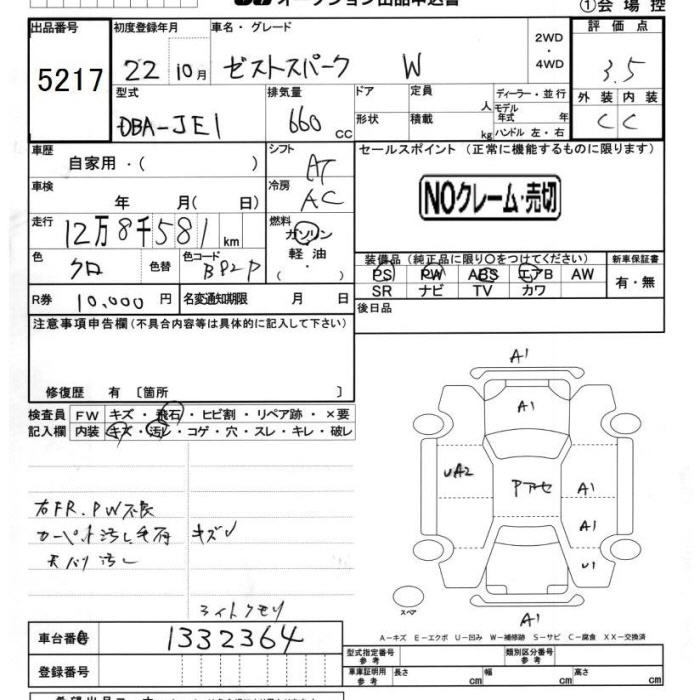 オークション出品申込書
①会 場 控
出品番号 初度登録年月 車名・グレード 評 価 点
5217 22 10月 ゼストスパーク W 2WD ・ 4WD 3.5
型式 排気量 ドア 定員 人 ディーラー・並行 外 装 内 装
DBA-JE1 660 CC 形状 積載 kg モデル年式 年 ハンドル 左・右 C C
車歴 シフト セールスポイント (正常に機能するものに限ります)
自家用・( ) AT
車検 冷房
年 月( 日) AC NOクレーム・売切
走行 燃料
12万8千581km ガソリン
軽 油
・( )
色 色コード 装備品(純正品に限り○をつけてください) 新車保証書
クロ 色替 BP2P PS PW ABS エアB AW 有・無
SR ナビ TV カワ
R券 10,000 円 名変通知期限 月 日 後日品
注意事項申告欄(不具合内容等は具体的に記入して下さい)
修復歴 有 〔箇所 〕
検査員 FW キズ・飛石・ヒビ割・リペア跡・×要
記入欄 内装 キズ・汚レ・コゲ・穴・スレ・キレ・破レ
右FR.PW不良
カーペット汚し キズ
天バリ汚し
ライトクモリ
A1
A1
UA2 Pアセ A1
A1
U1
スペア
A1
A－キズ E－エクボ U－凹み W－補修跡 S－サビ C－腐食 XX－交換済
車台番号 1332364
登録番号
型式指定番号 参 考 類別区分番号 参 考
車庫証明用 参 考 長さ cm 幅 cm 高さ cm